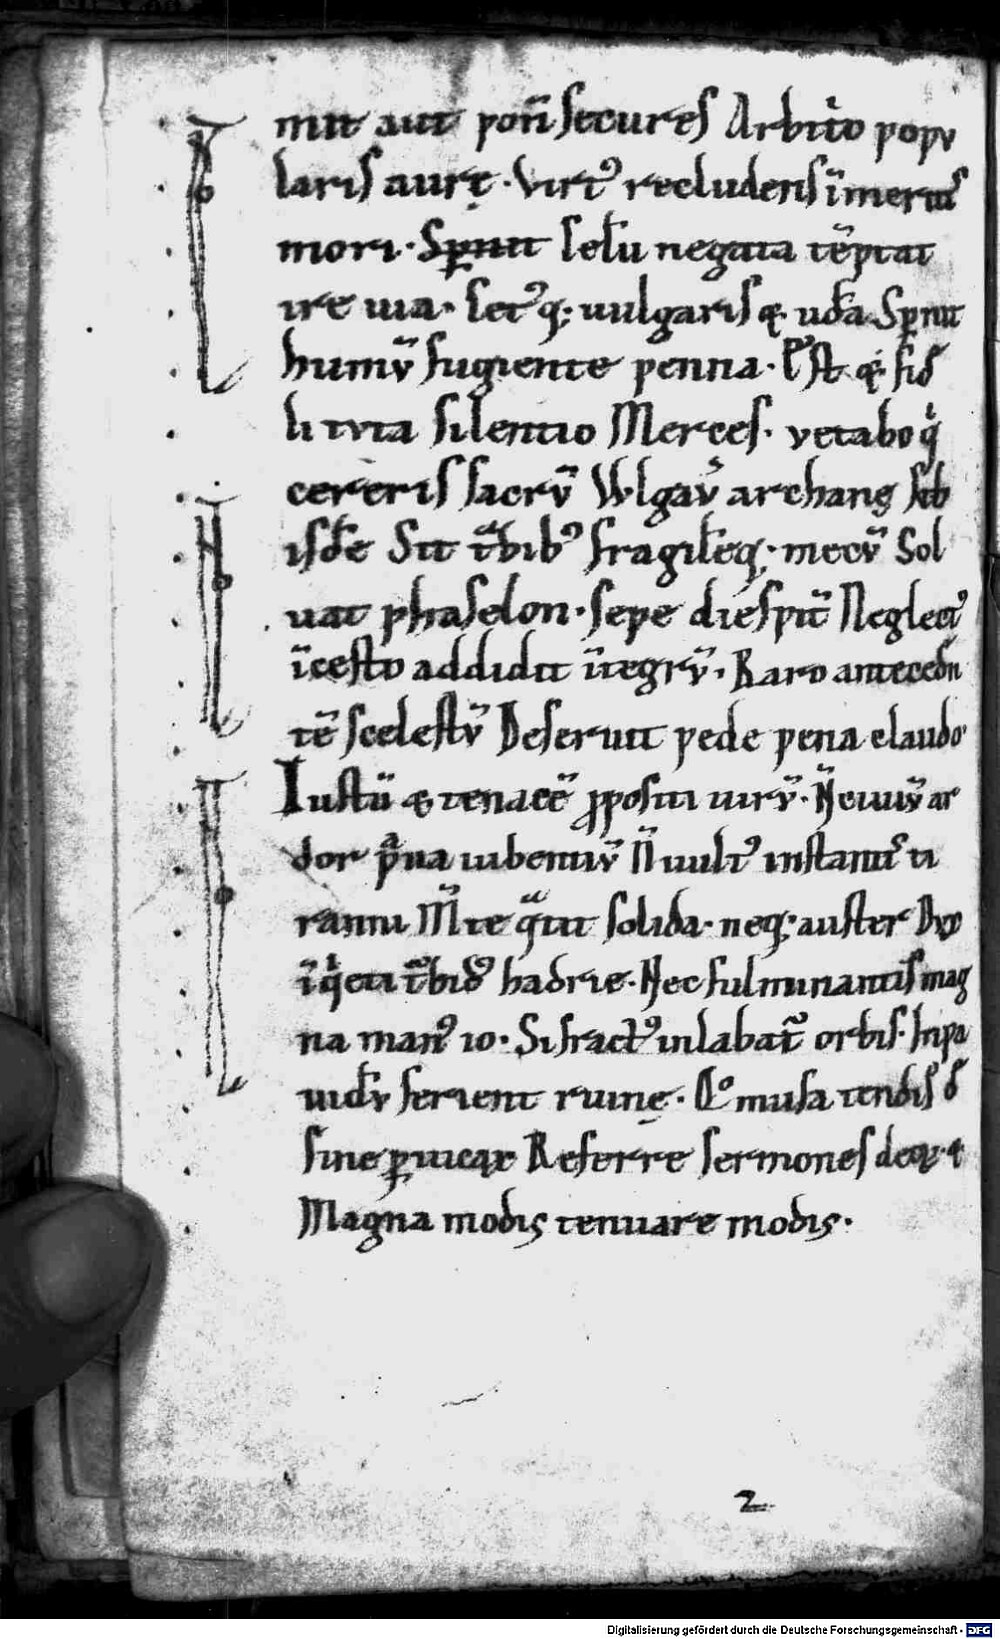 mit aut ponͥ secures Arbitͥo popu
laris aurę · Virtꝰ recludens īmeritͥs
mori · Sꝑnit celū negata tēptat
ire uia · Cetꝰq; uulgaris q̨ udā Sꝑnit
humū fugiente penna · Est q̨ fid
li tuta silentio Merces · vetabo qͥ
cereris sacrū Wlgaͥv archang sub
isdē Sit tͣbibꝰ fragilēq; mecū Sol
uat phaselon · sepe diespit̄ Neglectꝰ
īcesto addidit ītegrū · Raro antecedn̄
tē scelestū Deseruit pede pena claudo
Iustū & tenacē ꝓpositi uirū · N̄ ciuiū ar
dor pͣua iubentiū N̄ uultꝰ instantꝭ ti
ranni M̄te qͣtit solida · neq; auster Dux
īqͥeti tͥbidꝰ hadrie · Nec fulminantis mag
na manꝰ io · Si fractꝰ inlabat̄ orbis · Inpa
uidū ferient ruinę · Qͦ musa tendis d
sine ꝑuicax Referre sermones deoꝝ &
Magna modis tenuare modis ·
2
Digitalisierung gefördert durch die Deutsche Forschungsgemeinschaft - DFG